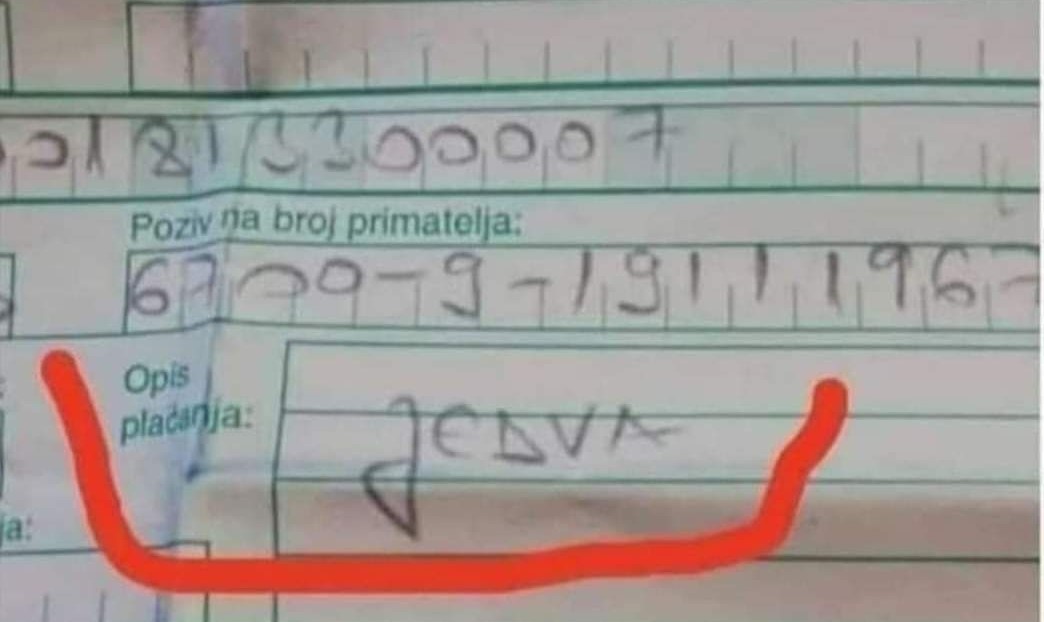 018133000007
Poziv na broj primatelja:
6779-9-19111967
Opis
plaćanja:
JEDVA
ja: